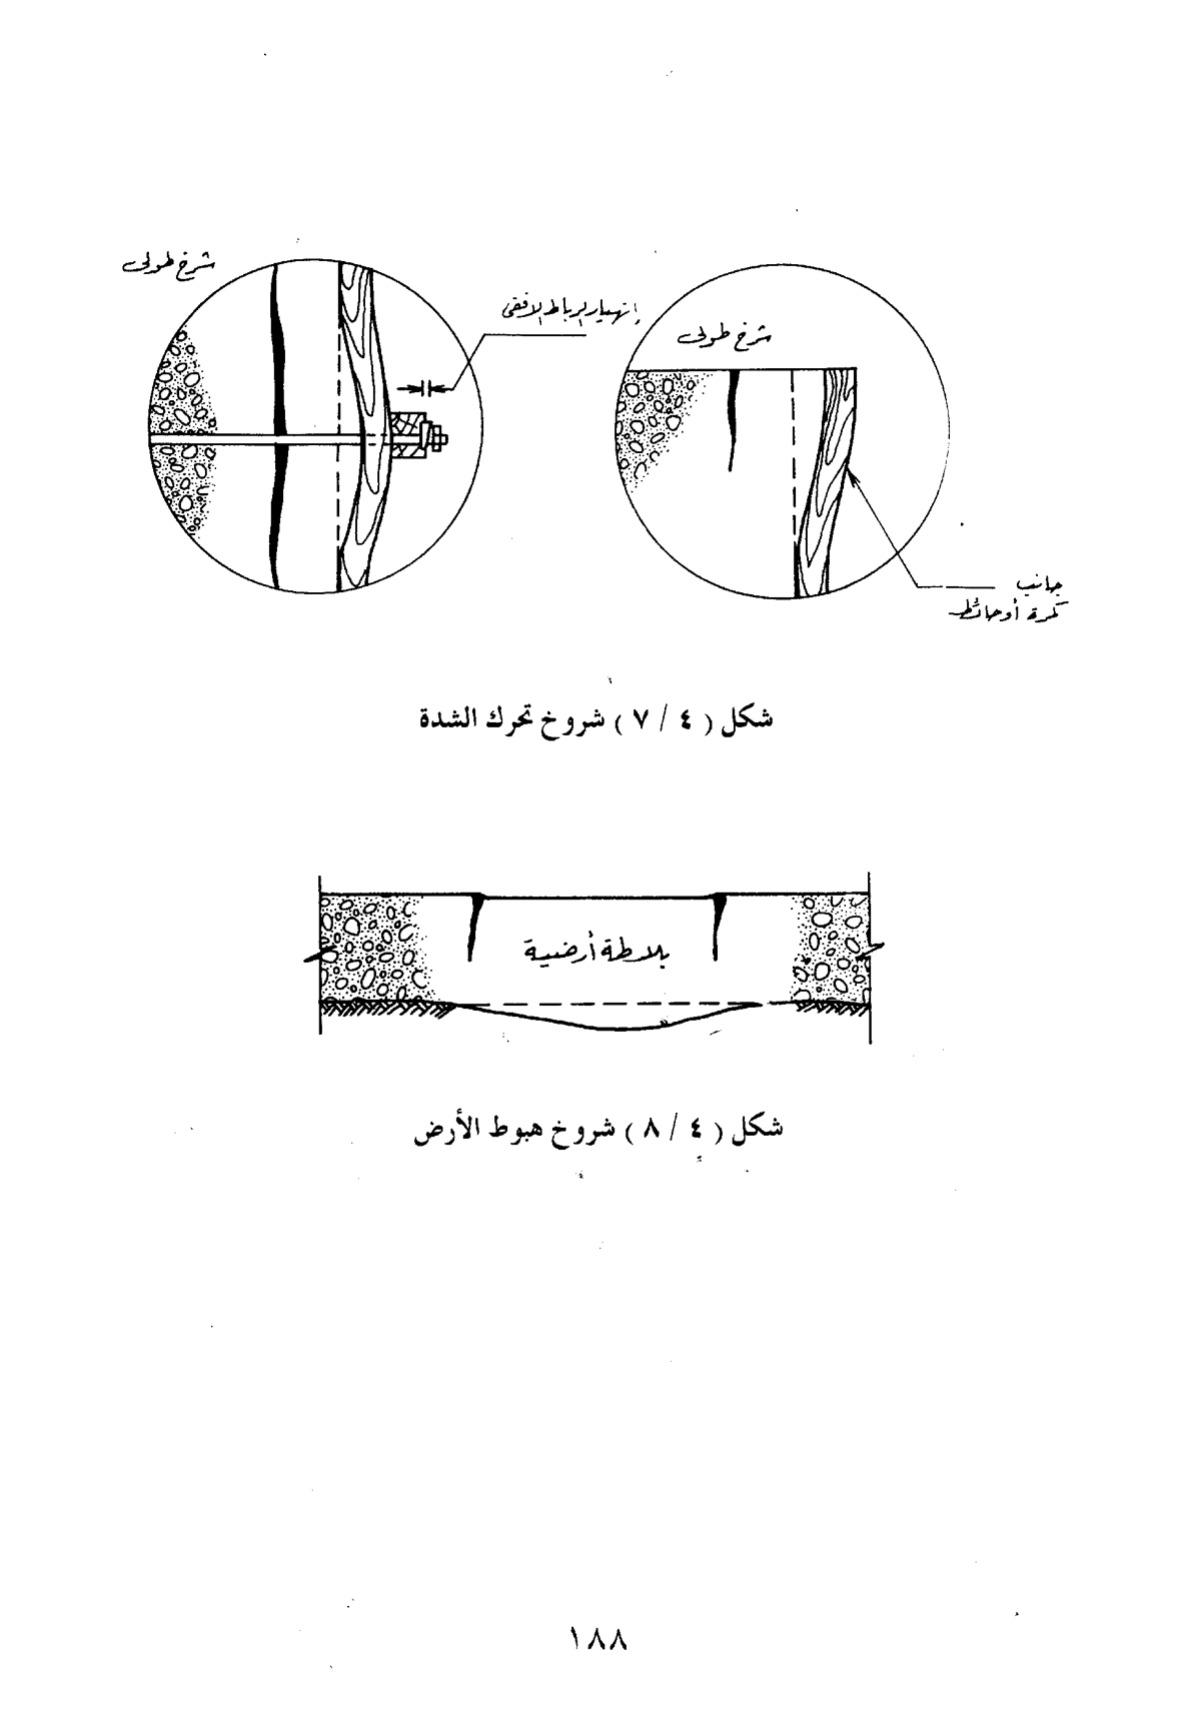 شرخ طولى
إنهيار الرباط الافقى
شرخ طولى
جانب
كمرة أو حائط
شكل ( ٤ / ٧ ) شروخ تحرك الشدة
بلاطة أرضية
شكل ( ٤ / ٨ ) شروخ هبوط الأرض
١٨٨